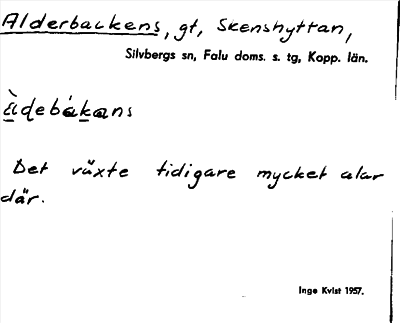 Alderbackens, gt, Skenshyttan,
Silvbergs sn, Falu doms. s. tg, Kopp. län.
àdebákans
Det växte tidigare mycket alar
där.
Inge Kvist 1957.